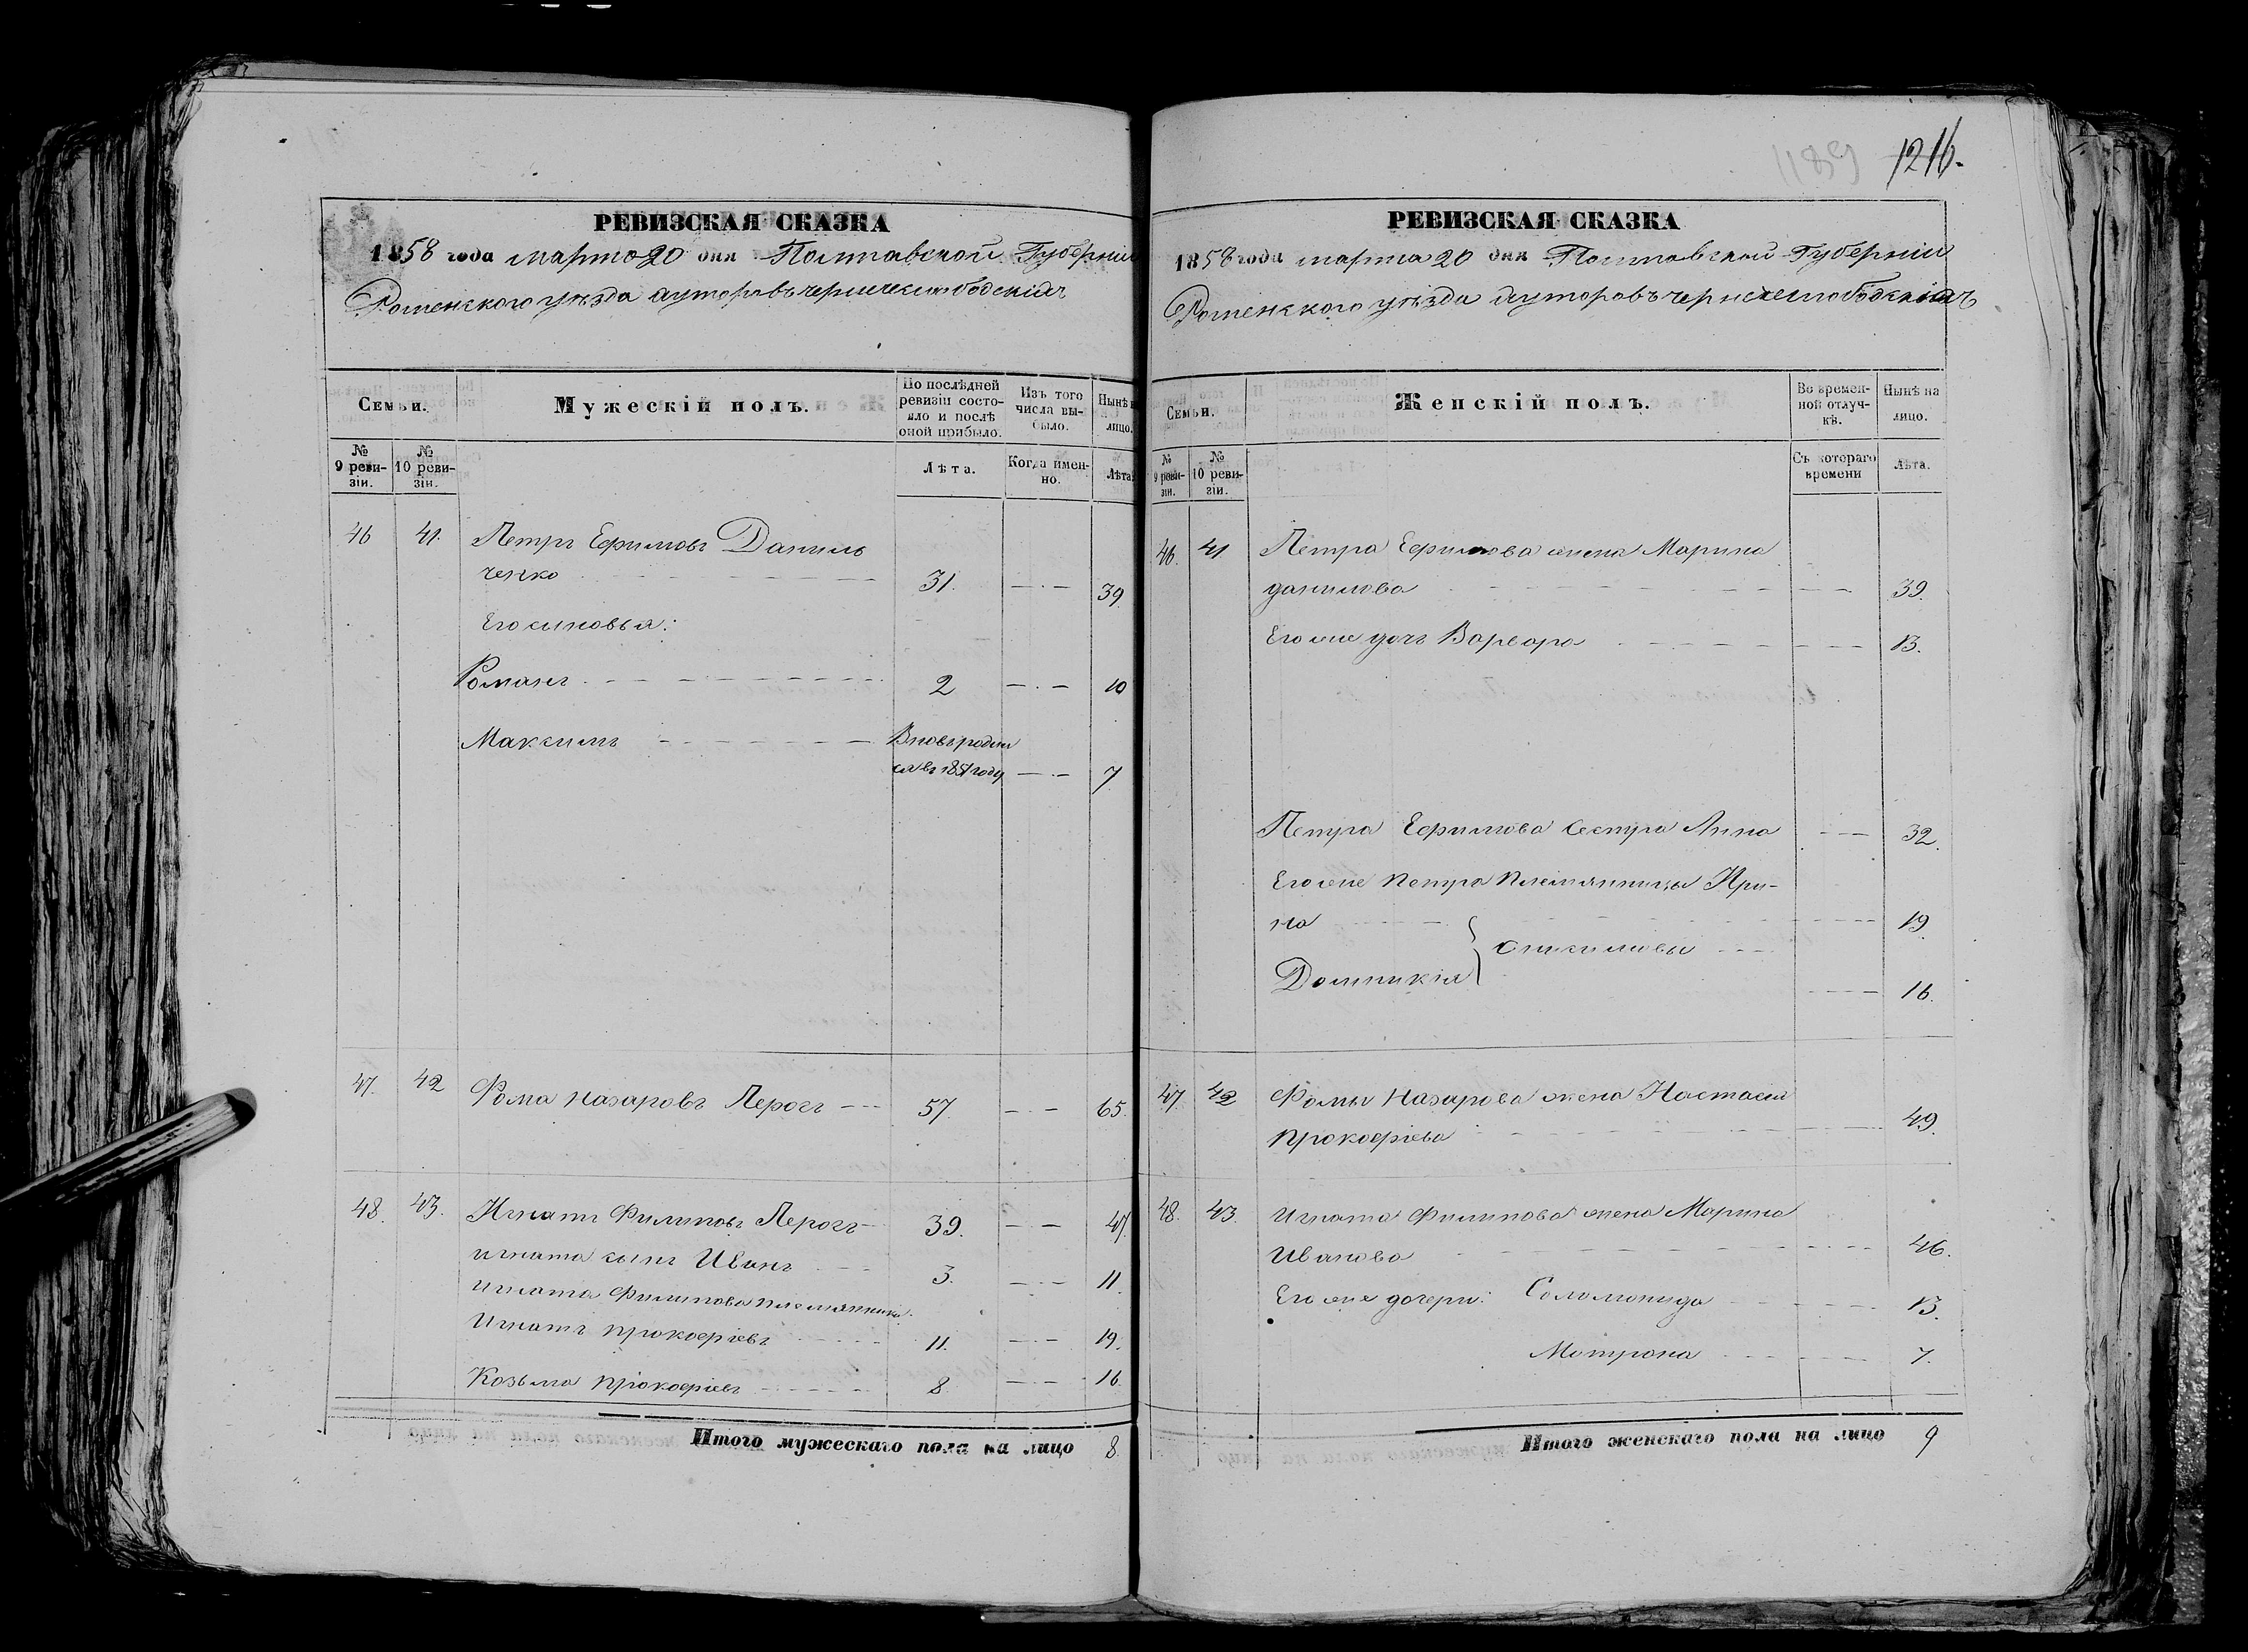 1189 1216.
РЕВИЗСКАЯ СКАЗКА
1858 года марта 20 дня Полтавской Губерніи
Роменского уѣзда хуторовъ чернечеслободскихъ
Семьи.
Мужескій полъ.
По послѣдней ревизіи состояло и послѣ оной прибыло.
Изъ того числа выбыло.
Нынѣ на лицо.
№ 9 ревизіи.
№ 10 ревизіи.
Лѣта.
Когда именно.
Лѣта
46 41. Петръ Ефимовъ Даниль
ченко 31. 39.
Его сыновья:
Романъ 2 10
Максимъ Вновь родил
ся въ 1851 году 7
47. 42 Фома Назаровъ Перогъ 57. 65.
48. 43. Игнатъ Филиповъ Перогъ 39. 47.
Игната сынъ Иванъ 3. 11.
Игната Филипова племянники.
Игнатъ Прокофіевъ 11. 19.
Козьма Прокофіевъ 8 16.
Итого мужескаго пола на лицо 8.
РЕВИЗСКАЯ СКАЗКА
1858 года марта 20 дня Полтавской Губерніи
Роменского уѣзда хуторовъ чернечеслободскихъ
Семьи.
Женскій полъ.
Во временной отлучкѣ.
Нынѣ на лицо.
№ 9 ревизіи.
№ 10 ревизіи.
Съ котораго времени
Лѣта.
46. 41 Петра Ефимова жена Марина
данилова 39.
Его же дочь Варвара 13.
Петра Ефимова Сестра Анна 32.
Его же Петра Племянницы Ири-
на 19.
Домникія 16.
47. 42 Фомы Назарова жена Настасья
Прокофіева 49.
48. 43. Игната Филипова жена Марина
Иванова 46.
Его же дочери: Соломонида 13.
Мотрона 7.
Итого женскаго пола на лицо 9